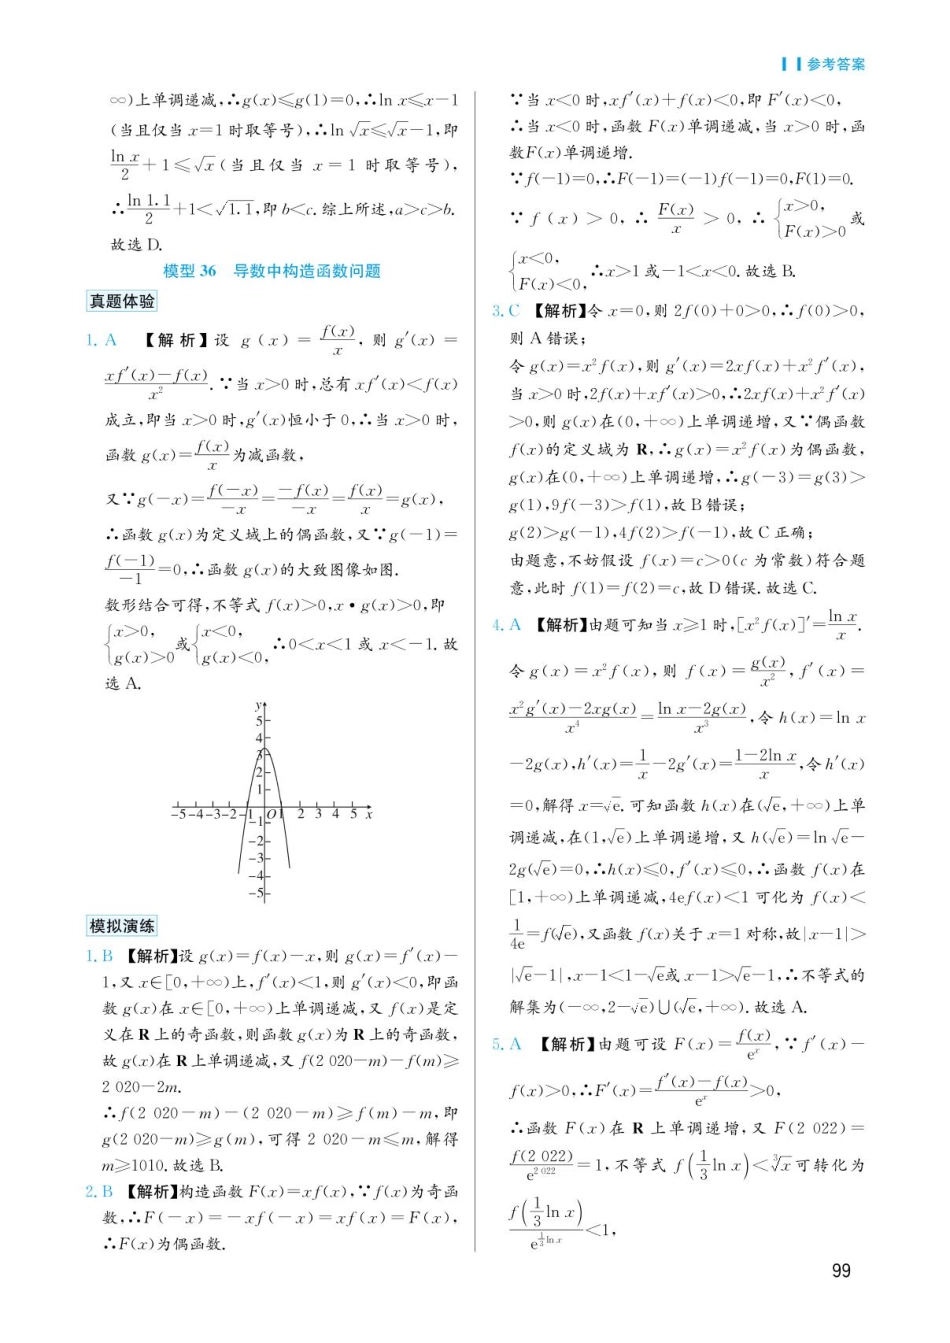 参考答案
∞)上单调递减,∴g(x)≤g(1)=0,∴ln x≤x−1
(当且仅当 x=1 时取等号),∴ln √x≤√x−1,即
ln x/2+1≤√x(当且仅当 x=1 时取等号),
∴ln 1.1/2+1<√1.1,即 b<c.综上所述,a>c>b.
故选 D.
模型 36 导数中构造函数问题
真题体验
1. A 【解析】设 g(x)=f(x)/x,则 g′(x)=
(xf′(x)−f(x))/x².∵当 x>0 时,总有 xf′(x)<f(x)
成立,即当 x>0 时,g′(x)恒小于 0,∴当 x>0 时,
函数 g(x)=f(x)/x为减函数,
又∵g(−x)=f(−x)/−x=−f(x)/−x=f(x)/x=g(x),
∴函数 g(x)为定义域上的偶函数,又∵g(−1)=
f(−1)/−1=0,∴函数 g(x)的大致图像如图.
数形结合可得,不等式 f(x)>0,x•g(x)>0,即
{x>0, g(x)>0 或{x<0, g(x)<0, ∴0<x<1 或 x<−1.故
选 A.
y
5
4
3
2
1
−5−4−3−2−1 O1 2 3 4 5 x
−1
−2
−3
−4
−5
模拟演练
1. B 【解析】设 g(x)=f(x)−x,则 g(x)=f′(x)−
1,又 x∈[0,+∞)上,f′(x)<1,则 g′(x)<0,即函
数 g(x)在 x∈[0,+∞)上单调递减,又 f(x)是定
义在 R 上的奇函数,则函数 g(x)为 R 上的奇函数,
故 g(x)在 R 上单调递减,又 f(2 020−m)−f(m)≥
2 020−2m.
∴f(2 020−m)−(2 020−m)≥f(m)−m,即
g(2 020−m)≥g(m),可得 2 020−m≤m,解得
m≥1010.故选 B.
2. B 【解析】构造函数 F(x)=xf(x),∵f(x)为奇函
数,∴F(−x)=−xf(−x)=xf(x)=F(x),
∴F(x)为偶函数.
∵当 x<0 时,xf′(x)+f(x)<0,即 F′(x)<0,
∴当 x<0 时,函数 F(x)单调递减,当 x>0 时,函
数F(x)单调递增.
∵f(−1)=0,∴F(−1)=(−1)f(−1)=0,F(1)=0.
∵f(x)>0,∴F(x)/x>0,∴{x>0, F(x)>0 或
{x<0, F(x)<0, ∴x>1 或−1<x<0.故选 B.
3. C 【解析】令 x=0,则 2f(0)+0>0,∴f(0)>0,
则 A 错误;
令 g(x)=x²f(x),则 g′(x)=2xf(x)+x²f′(x),
当 x>0 时,2f(x)+xf′(x)>0,∴2xf(x)+x²f′(x)
>0,则 g(x)在(0,+∞)上单调递增,又∵偶函数
f(x)的定义域为 R,∴g(x)=x²f(x)为偶函数,
g(x)在(0,+∞)上单调递增,∴g(−3)=g(3)>
g(1),9f(−3)>f(1),故 B 错误;
g(2)>g(−1),4f(2)>f(−1),故 C 正确;
由题意,不妨假设 f(x)=c>0(c 为常数)符合题
意,此时 f(1)=f(2)=c,故 D 错误.故选 C.
4. A 【解析】由题可知当 x≥1 时,[x²f(x)]′=ln x/x.
令 g(x)=x²f(x),则 f(x)=g(x)/x²,f′(x)=
(x²g′(x)−2xg(x))/x⁴=(ln x−2g(x))/x³,令 h(x)=ln x
−2g(x),h′(x)=1/x−2g′(x)=(1−2ln x)/x,令 h′(x)
=0,解得 x=√e.可知函数 h(x)在(√e,+∞)上单
调递减,在(1,√e)上单调递增,又 h(√e)=ln √e−
2g(√e)=0,∴h(x)≤0,f′(x)≤0,∴函数 f(x)在
[1,+∞)上单调递减,4ef(x)<1 可化为 f(x)<
1/4e=f(√e),又函数 f(x)关于 x=1 对称,故|x−1|>
|√e−1|,x−1<1−√e或 x−1>√e−1,∴不等式的
解集为(−∞,2−√e)∪(√e,+∞).故选 A.
5. A 【解析】由题可设 F(x)=f(x)/eˣ,∵f′(x)−
f(x)>0,∴F′(x)=(f′(x)−f(x))/eˣ>0,
∴函数 F(x)在 R 上单调递增,又 F(2 022)=
f(2 022)/e^(2 022)=1,不等式 f(1/3 ln x)<∛x可转化为
f(1/3 ln x)/e^(1/3 ln x)<1,
99